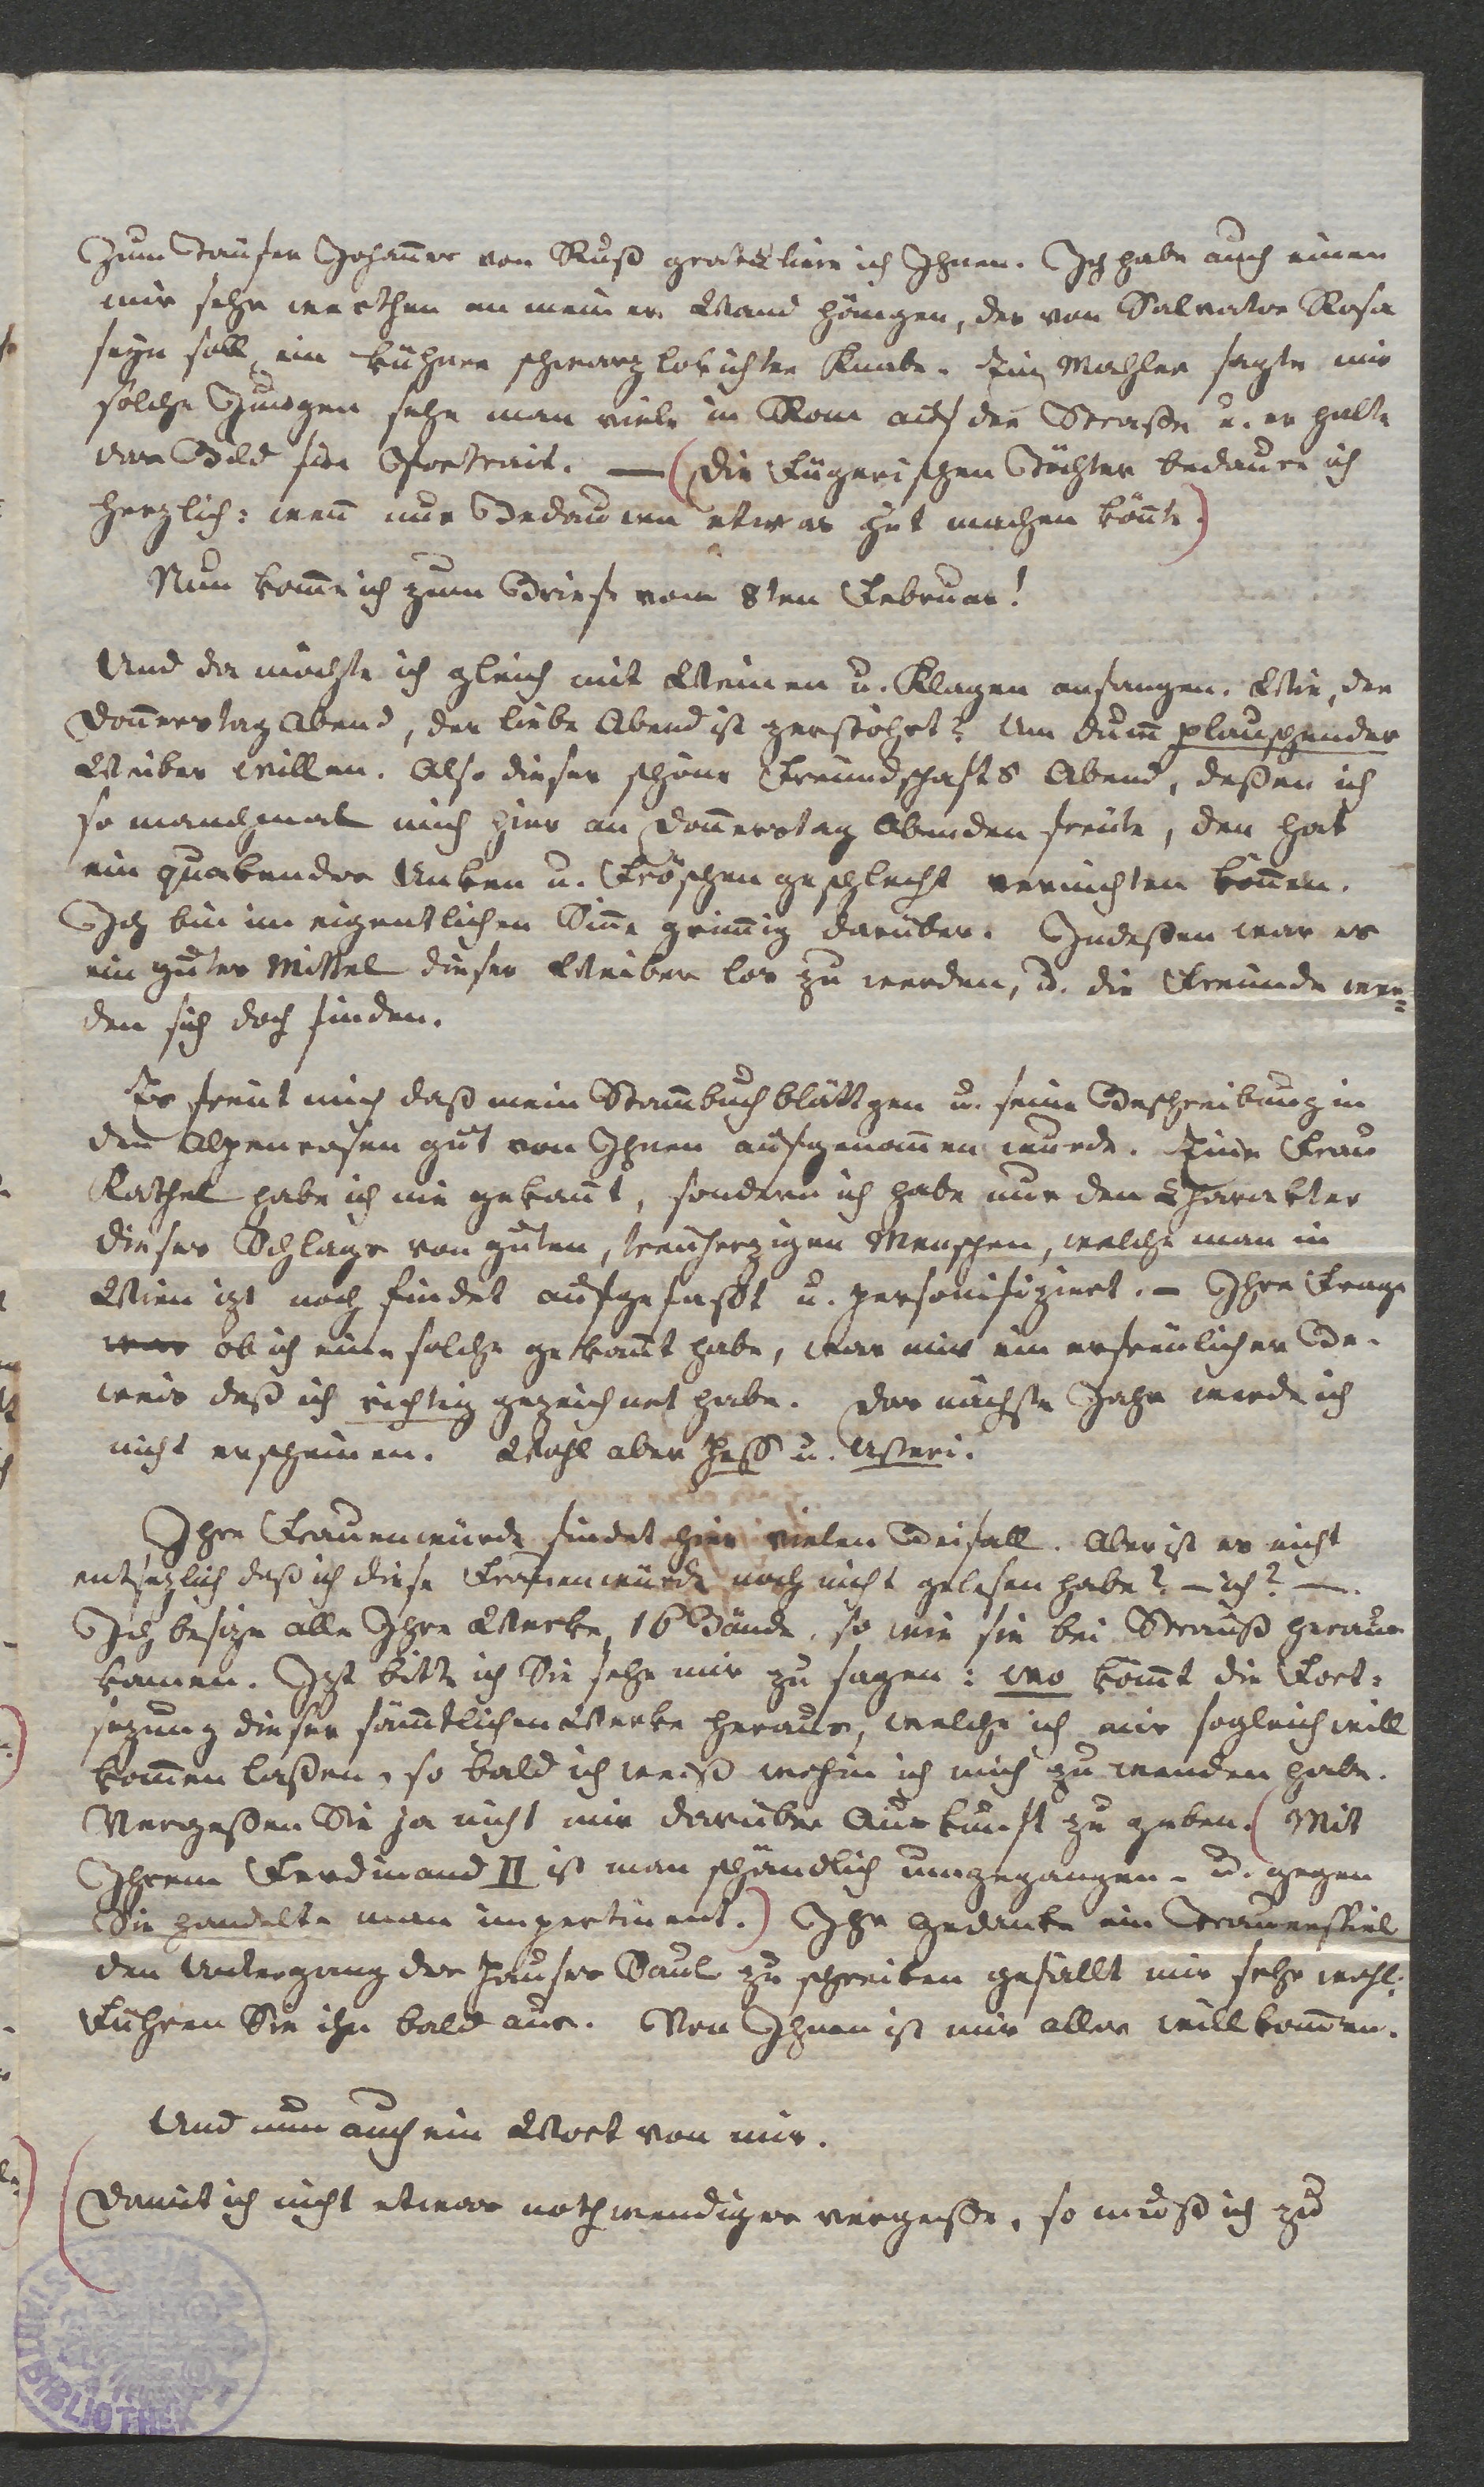 Zum Taufer Johannes von Ruß gratuliere ich Ihnen. Ich habe auch einen
mir sehr werthen an meiner Wand hängen, der von Salvator Rosa
seyn soll, ein kühner schwarzlokichter Knabe. Ein Mahler sagte mir
solche Jungen sehe man viele in Rom auf der Straße u. er halte
das Bild für Portrait. — (Die Fügerischen Töchter bedaure ich
herzlich: wen̄ nur Bedauren etwas gut machen kön̄te.)
Nun kom̄e ich zum Briefe vom 8ten Februar!
Und da möchte ich gleich mit Weinen u. Klagen anfangen. Wie, der
Don̄erstag Abend, der liebe Abend ist zerstöhrt? Um dum̄ plauschender
Weiber willen. Also dieser schöne Freundschafts Abend, deßen ich
so manchmal mich hier an Don̄erstag Abenden freute, den hat
ein quakendes Unken u. Fröschengeschlecht vernichten kön̄en.
Ich bin im eigentlichen Sin̄e grim̄ig darüber. Indeßen war es
ein gutes Mittel dieser Weiber los zu werden, u. die Freunde wer=
den sich doch finden.
Es freut mich daß mein Stam̄buchblättgen u. seine Beschreibung in
den Alpenrosen gut von Ihnen aufgenom̄en wurde. Eine Frau
Kathel habe ich nie gekan̄t, sondern ich habe nur den Charakter
dieses Schlags von guten, treuherzigen Menschen, welche man in
Wien izt noch findet aufgefaßt u. personifiziert. – Ihre Frage
was ob ich eine solche gekan̄t habe, war mir ein erfreulicher Be-
weis daß ich richtig gezeichnet habe. Das nächste Jahr werde ich
nicht erscheinen. Wohl aber Heß u. Usteri.
Ihre Frauenwürde findet hier vielen Beifall. Aber ist es nicht
entsezlich daß ich diese Frauenwürde noch nicht gelesen habe? – ich? —.
Ich besize alle Ihre Werke, 16 Bände, so wie sie bei Strauß heraus
kamen. Izt bitte ich Sie sehr mir zu sagen: wo kom̄t die Fort=
sezung dieser säm̄tlichen Werke heraus, welche ich mir sogleich will
kom̄en laßen, so bald ich weiß wohin ich mich zu wenden habe.
Vergeßen Sie ja nicht mir darüber Auskunft zu geben. (Mit
Ihrem Ferdinand II ist man schändlich umgegangen – u. gegen
Sie handelte man impertinent.) Ihr Gedanke ein Trauerspiel
den Untergang des Hauses Saul zu schreiben gefällt mir sehr wohl.
Führen Sie ihn bald aus. Von Ihnen ist mir alles willkom̄en.
Und nun auch ein Wort von mir.
(Damit ich nicht etwas nothwendiges vergeße, so muß ich zu
BIBLIOTHEK